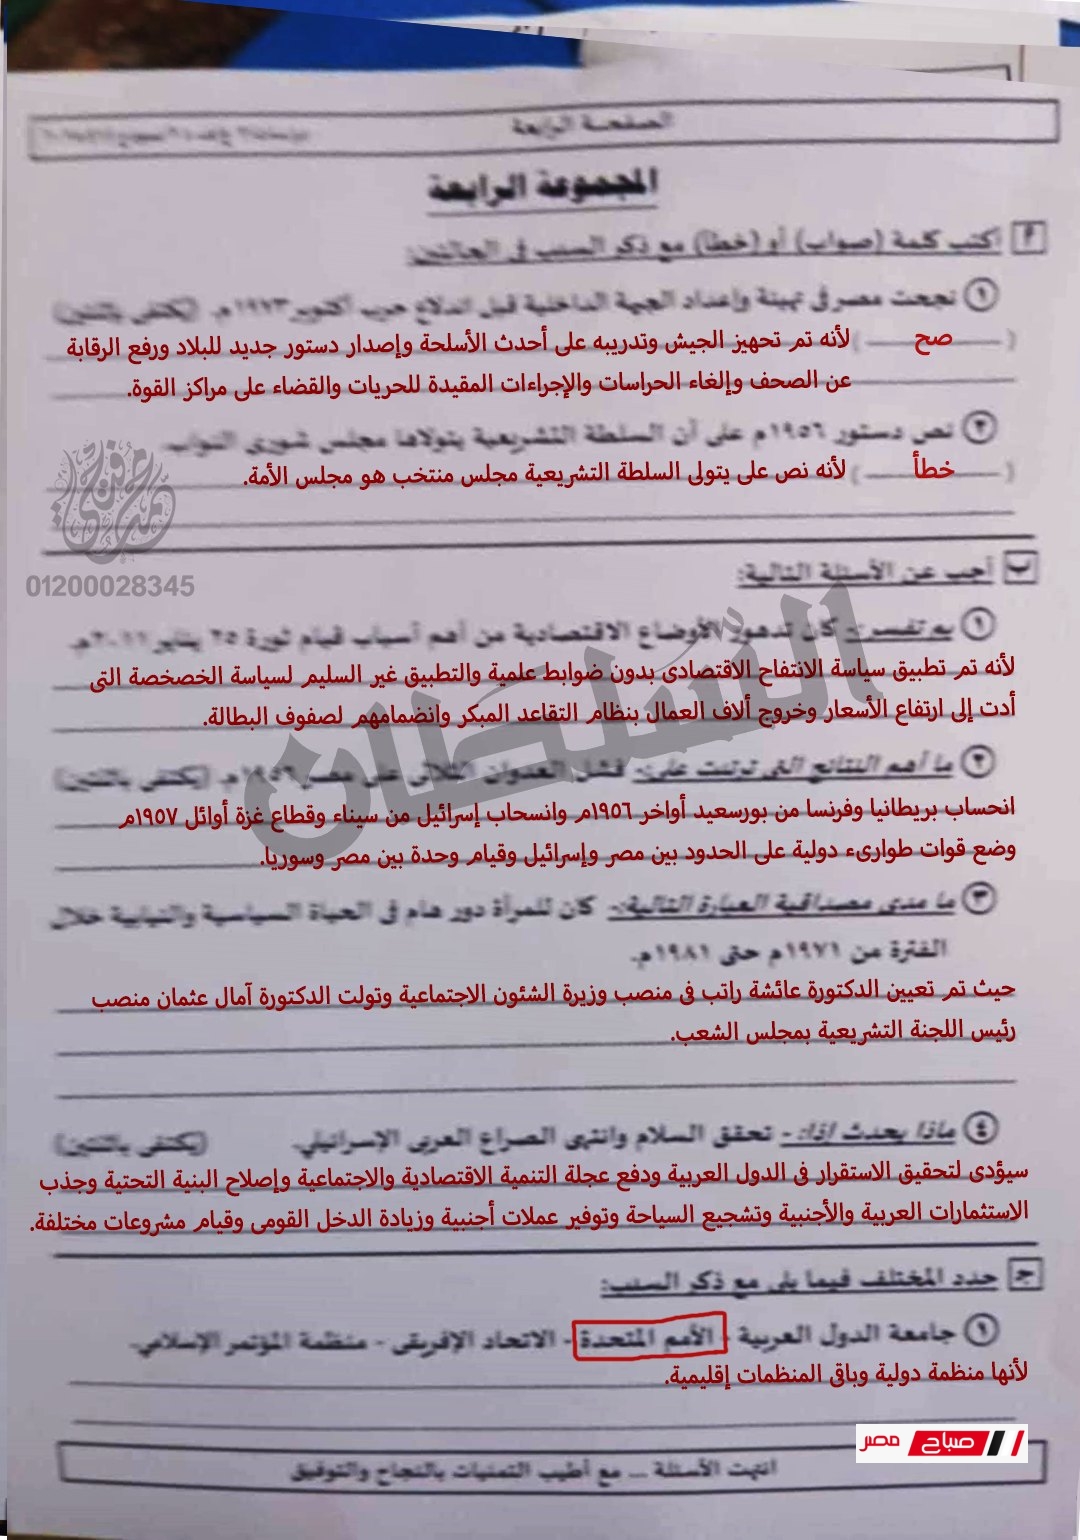 الصفحة الرابعة
المجموعة الرابعة
أ اكتب كلمة (صواب) أو (خطأ) مع ذكر السبب فى الحالتين:
١ نجحت مصر فى تهيئة وإعداد الجبهة الداخلية قبل اندلاع حرب أكتوبر ١٩٧٣م. (يكتفى باثنتين)
( صح ) لأنه تم تحهيز الجيش وتدريبه على أحدث الأسلحة وإصدار دستور جديد للبلاد ورفع الرقابة
عن الصحف وإلغاء الحراسات والإجراءات المقيدة للحريات والقضاء على مراكز القوة.
٢ نص دستور ١٩٥٦م على أن السلطة التشريعية يتولاها مجلس شورى النواب.
( خطأ ) لأنه نص على يتولى السلطة التشريعية مجلس منتخب هو مجلس الأمة.
01200028345
ب أجب عن الأسئلة التالية:
١ بم تفسر:- كان تدهور الأوضاع الاقتصادية من أهم أسباب قيام ثورة ٢٥ يناير ٢٠١١م.
لأنه تم تطبيق سياسة الانتفاح الاقتصادى بدون ضوابط علمية والتطبيق غير السليم لسياسة الخصخصة التى
أدت إلى ارتفاع الأسعار وخروج ألاف العمال بنظام التقاعد المبكر وانضمامهم لصفوف البطالة.
السلطان
٢ ما أهم النتائج التى ترتبت على:- فشل العدوان الثلاثى على مصر ١٩٥٦م. (يكتفى باثنتين)
انحساب بريطانيا وفرنسا من بورسعيد أواخر ١٩٥٦م وانسحاب إسرائيل من سيناء وقطاع غزة أوائل ١٩٥٧م
وضع قوات طوارىء دولية على الحدود بين مصر وإسرائيل وقيام وحدة بين مصر وسوريا.
٣ ما مدى مصداقية العبارة التالية:- كان للمرأة دور هام فى الحياة السياسية والنيابية خلال
الفترة من ١٩٧١م حتى ١٩٨١م.
حيث تم تعيين الدكتورة عائشة راتب فى منصب وزيرة الشئون الاجتماعية وتولت الدكتورة آمال عثمان منصب
رئيس اللجنة التشريعية بمجلس الشعب.
٤ ماذا يحدث إذا:- تحقق السلام وانتهى الصراع العربى الإسرائيلي. (يكتفى باثنتين)
سيؤدى لتحقيق الاستقرار فى الدول العربية ودفع عجلة التنمية الاقتصادية والاجتماعية وإصلاح البنية التحتية وجذب
الاستثمارات العربية والأجنبية وتشجيع السياحة وتوفير عملات أجنبية وزيادة الدخل القومى وقيام مشروعات مختلفة.
ج حدد المختلف فيما يلى مع ذكر السبب:
١ جامعة الدول العربية - الأمم المتحدة - الاتحاد الإفريقى - منظمة المؤتمر الإسلامي.
لأنها منظمة دولية وباقى المنظمات إقليمية.
صباح مصر
انتهت الأسئلة ... مع أطيب التمنيات بالنجاح والتوفيق